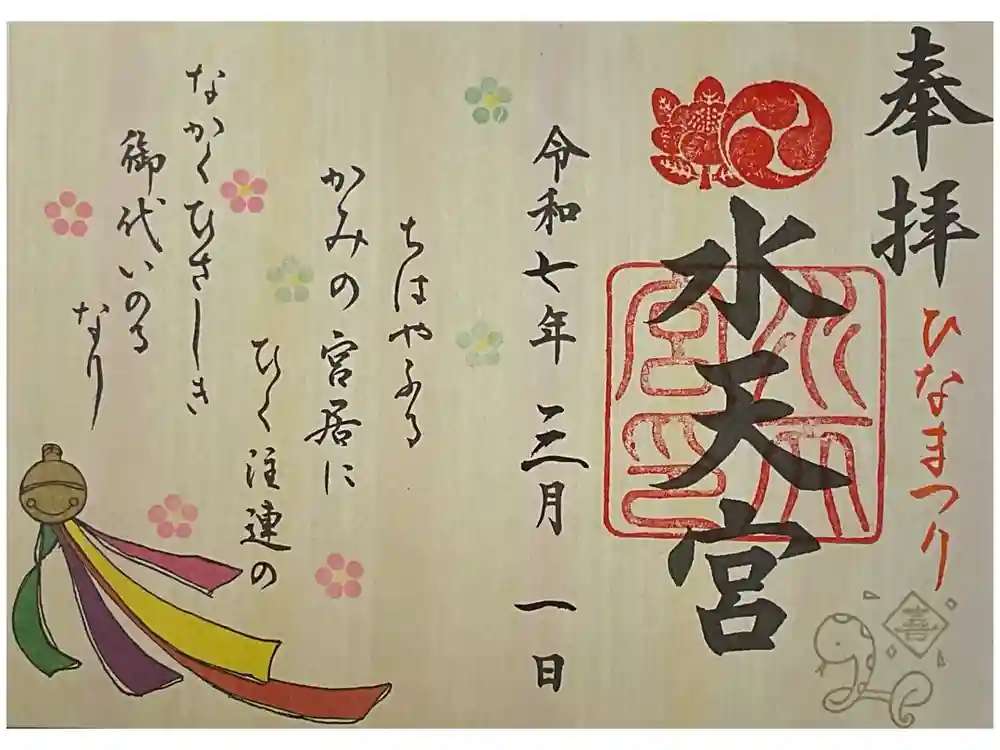 奉拝
ひなまつり
水天宮
水天宮印
令和七年 三月 一日
ちはやふる
かみの宮居に
ひく注連の
なかくひさしき
御代いのる
なり
喜